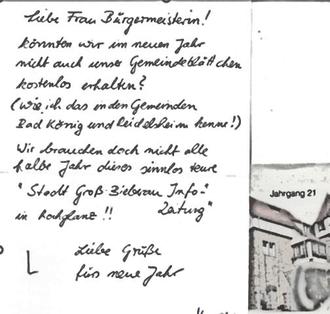 Liebe Frau Bürgermeisterin!
könnten wir im neuen Jahr
nicht auch unser Gemeindeblättchen
kostenlos erhalten?
(Wie ich das in den Gemeinden
Bad König und Reichelsheim kenne!)
Wir brauchen doch nicht alle
halbe Jahr dieses sinnlos teure
"Stadt Groß-Bieberau Info-
Zeitung"
in Hochglanz!!
Liebe Grüße
fürs neue Jahr
Jahrgang 21